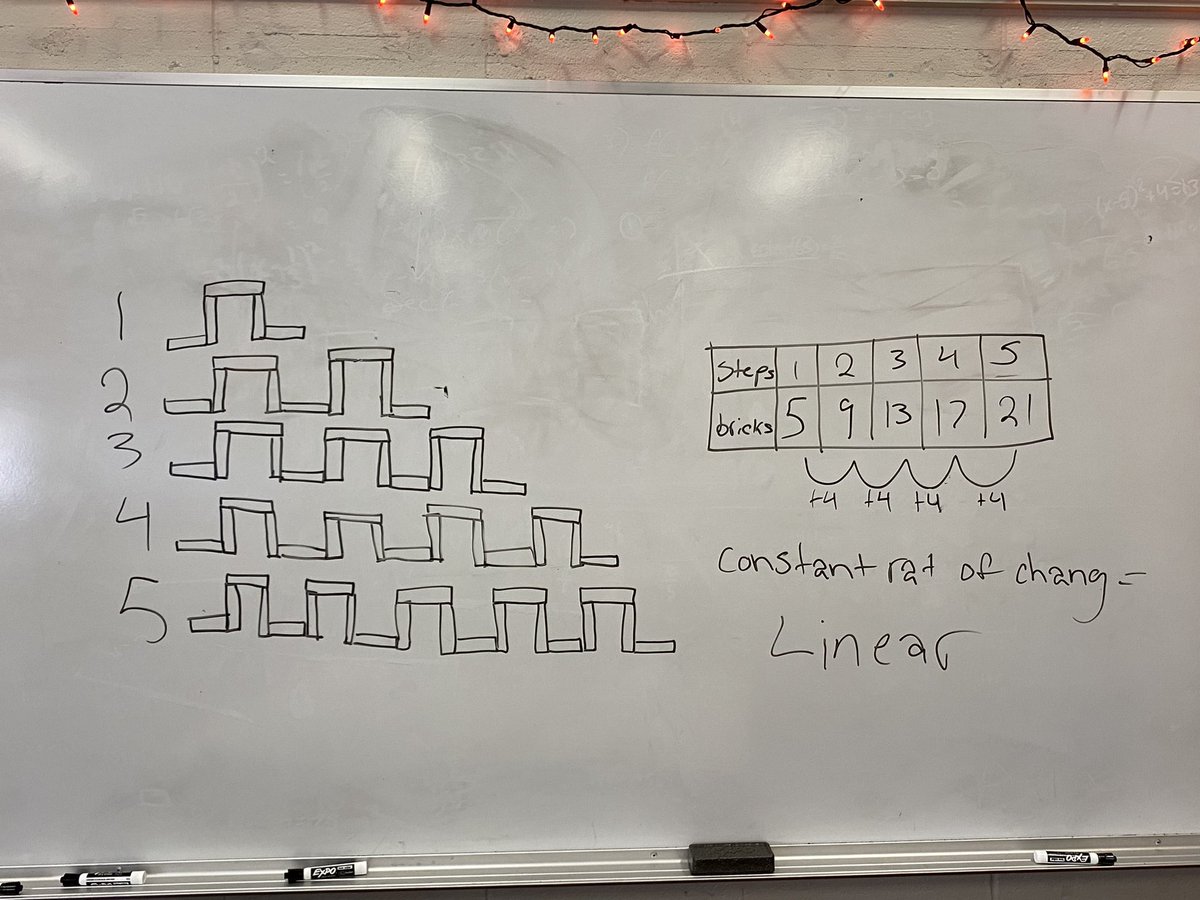 1
2
3
4
5
Steps 1 2 3 4 5
bricks 5 9 13 17 21
+4 +4 +4 +4
constant rat of chang =
Linear
EXPO
EXPO